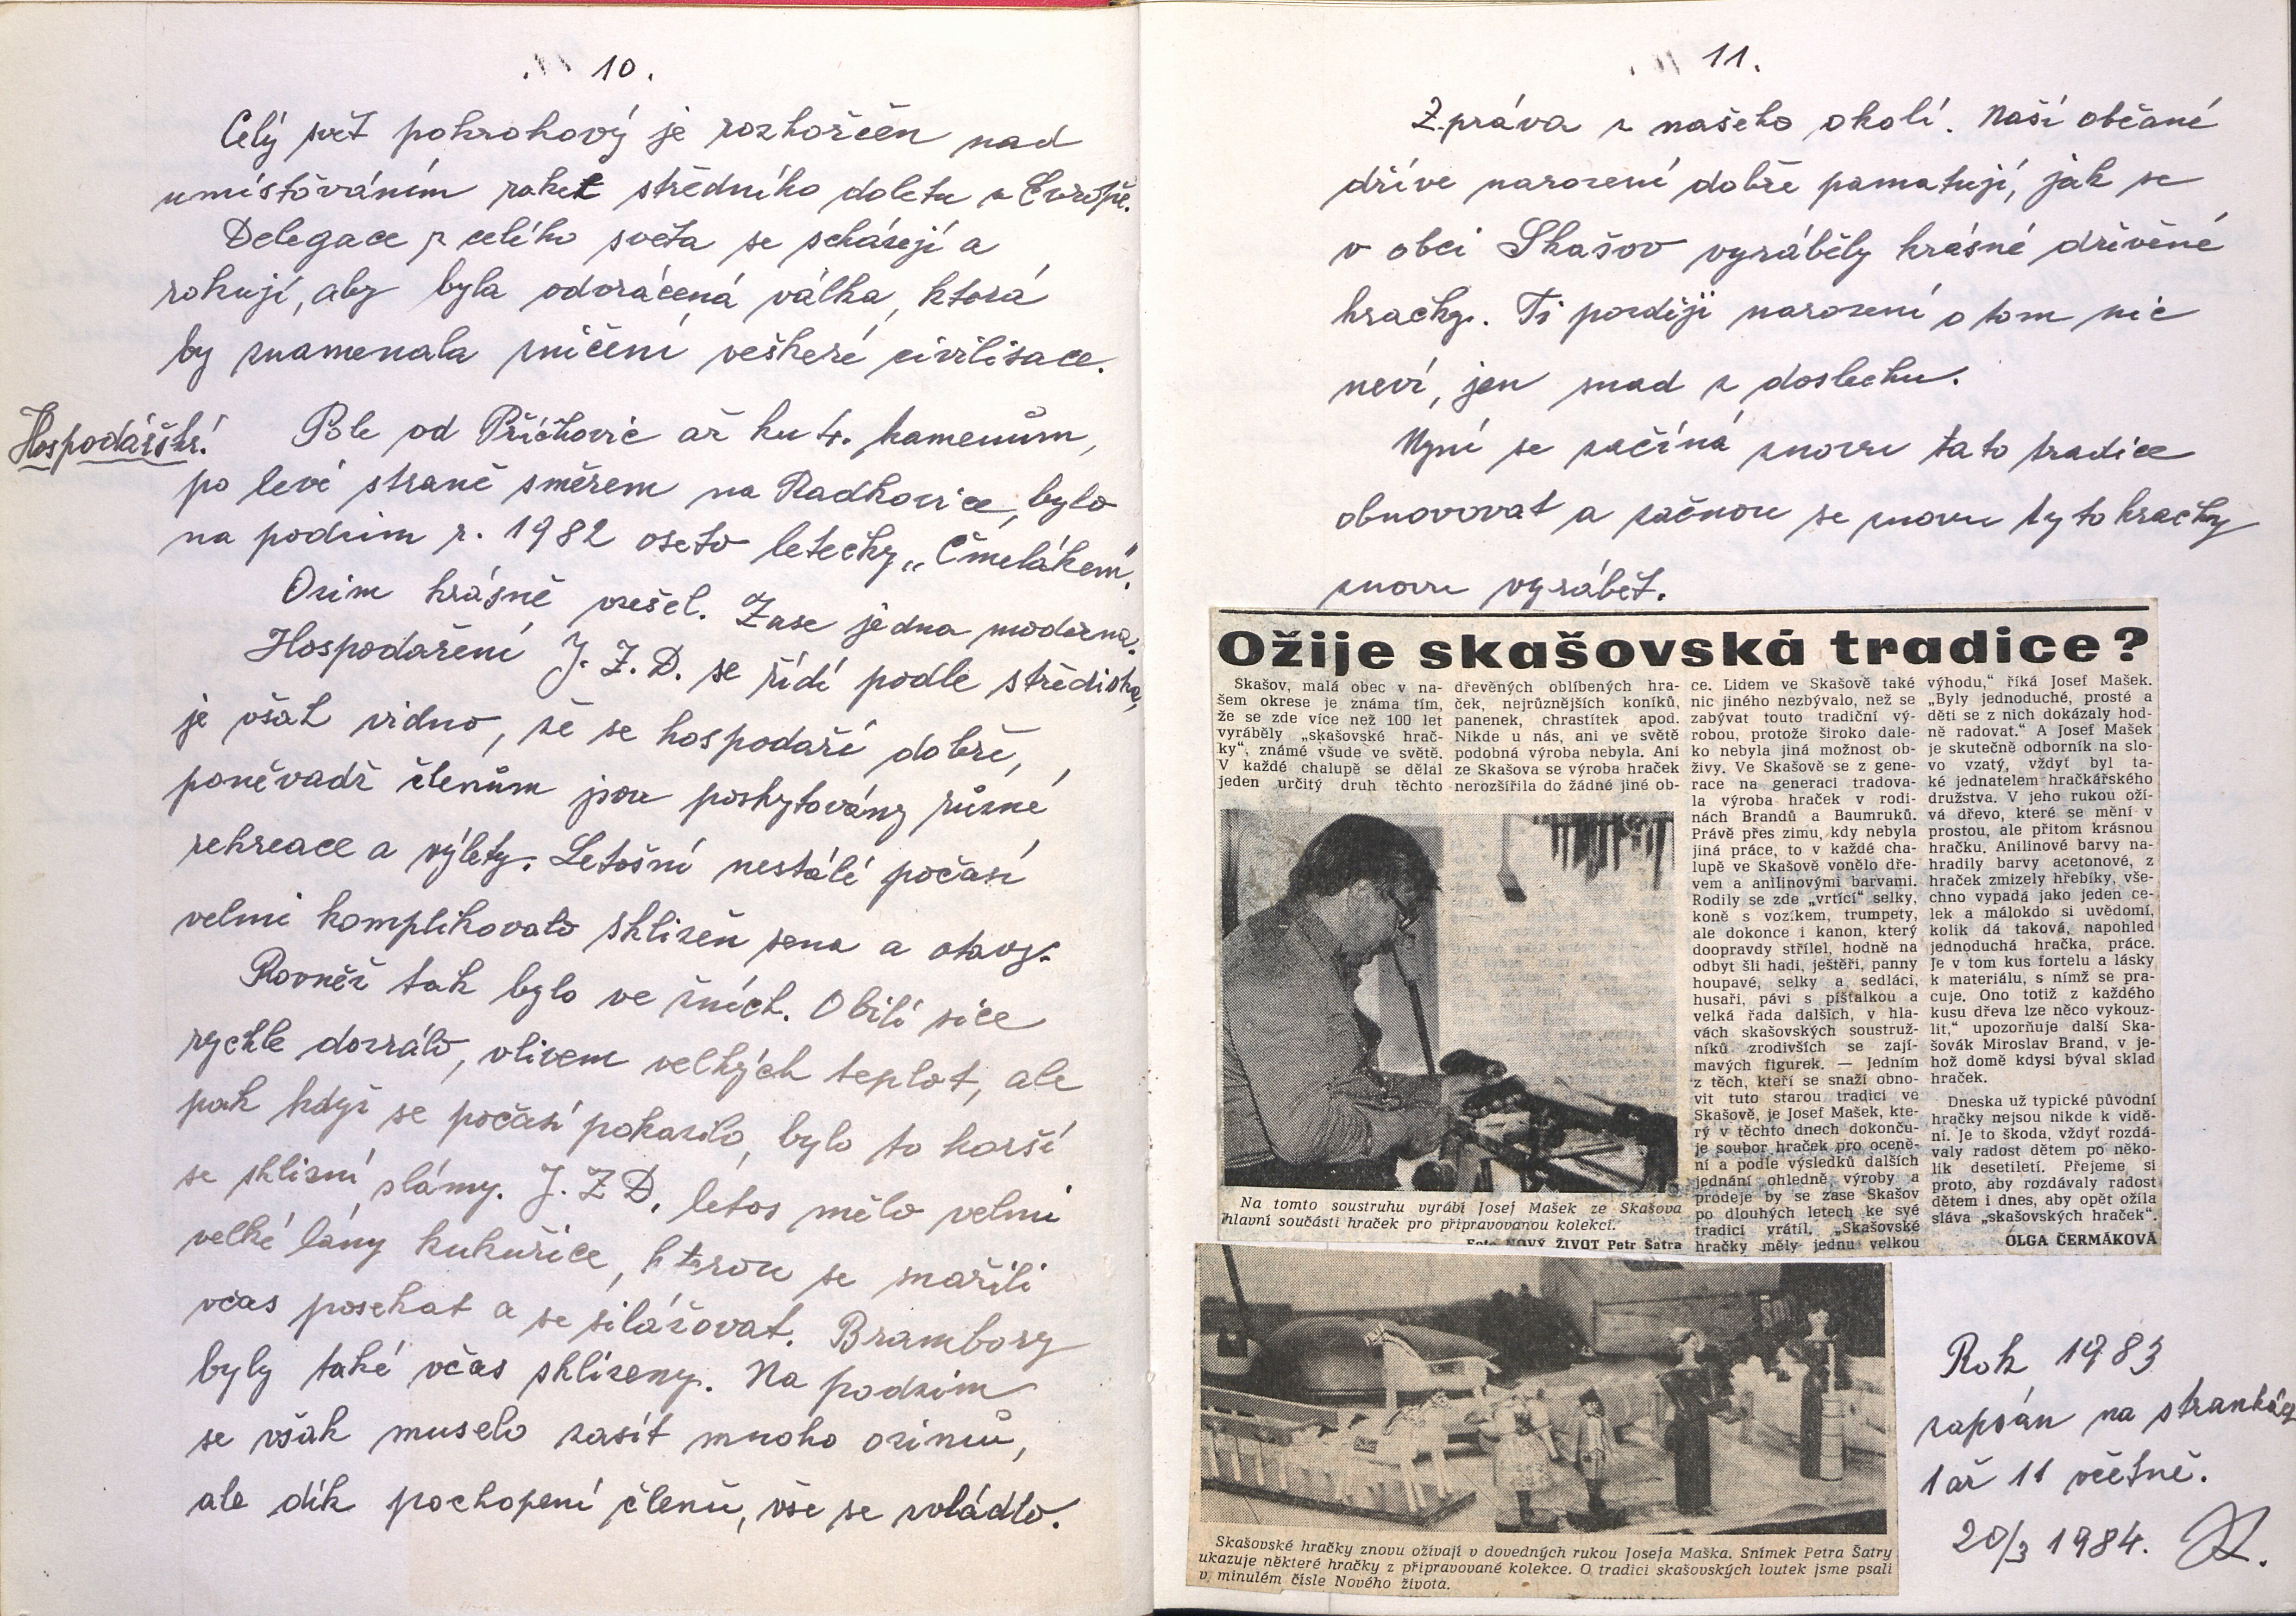 10.
Celý svět pokrokový je rozhořčen nad
umísťováním raket středního doletu v Evropě.
Delegace z celého světa se scházejí a
rokují, aby byla odvrácená válka, která
by znamenala zničení veškeré civilisace.
Hospodářství
Pole od Příchovic až ku 4. kamenům,
po levé straně směrem na Radkovice, bylo
na podzim r. 1982 oseto letecky „Čmelákem".
Ozim krásně vzešel. Zase jedna moderna.
Hospodaření J. Z. D. se řídí podle střediska,
je však vidno, že se hospodaří dobře,
poněvadž členům jsou poskytovány různé
rekreace a výlety. Letošní nestálé počasí
velmi komplikovalo sklizeň sena a otavy.
Rovněž tak bylo ve žních. Obilí sice
rychle dozrálo, vlivem velkých teplot, ale
pak když se počasí pokazilo, bylo to horší
se sklizní slámy. J. Z D. letos mělo velmi
velké lány kukuřice, kterou se snažili
včas posekat a se silážovat. Brambory
byly také včas sklizeny. Na podzim
se však muselo zasít mnoho ozimů,
ale dík pochopení členů, vše se zvládlo.
11.
Zpráva z našeho okolí. Naší občané
dříve narození dobře pamatují, jak se
v obci Skašov vyráběly krásné dřevěné
hračky. Ti později narození o tom nic
neví, jen snad z doslechu.
Nyní se začíná znovu tato tradice
obnovovat a začnou se znovu tyto hračky
znovu vyrábět.
Ožije skašovská tradice?
Skašov, malá obec v na-
šem okrese je známa tím,
že se zde více než 100 let
vyráběly „skašovské hrač-
ky", známé všude ve světě.
V každé chalupě se dělal
jeden určitý druh těchto
dřevěných oblíbených hra-
ček, nejrůznějších koníků,
panenek, chrastítek apod.
Nikde u nás, ani ve světě
podobná výroba nebyla. Ani
ze Skašova se výroba hraček
nerozšířila do žádné jiné ob-
ce. Lidem ve Skašově také
nic jiného nezbývalo, než se
zabývat touto tradiční vý-
robou, protože široko dale-
ko nebyla jiná možnost ob-
živy. Ve Skašově se z gene-
race na generaci tradova-
la výroba hraček v rodi-
nách Brandů a Baumruků.
Právě přes zimu, kdy nebyla
jiná práce, to v každé cha-
lupě ve Skašově vonělo dře-
vem a anilinovými barvami.
Rodily se zde „vrtící" selky,
koně s vozíkem, trumpety,
ale dokonce i kanon, který
doopravdy střílel, hodně na
odbyt šli hadi, ještěři, panny
houpavé, selky a sedláci,
husaři, pávi s píšťalkou a
velká řada dalších, v hla-
vách skašovských soustruž-
níků zrodivších se zají-
mavých figurek. — Jedním
z těch, kteří se snaží obno-
vit tuto starou tradici ve
Skašově, je Josef Mašek, kte-
rý v těchto dnech dokonču-
je soubor hraček pro oceně-
ní a podle výsledků dalších
jednání ohledně výroby a
prodeje by se zase Skašov
po dlouhých letech ke své
tradici vrátil. „Skašovské
hračky měly jednu velkou
výhodu," říká Josef Mašek.
„Byly jednoduché, prosté a
děti se z nich dokázaly hod-
ně radovat." A Josef Mašek
je skutečně odborník na slo-
vo vzatý, vždyť byl ta-
ké jednatelem hračkářského
družstva. V jeho rukou oží-
vá dřevo, které se mění v
prostou, ale přitom krásnou
hračku. Anilinové barvy na-
hradily barvy acetonové, z
hraček zmizely hřebíky, vše-
chno vypadá jako jeden ce-
lek a málokdo si uvědomí,
kolik dá taková, napohled
jednoduchá hračka, práce.
Je v tom kus fortelu a lásky
k materiálu, s nímž se pra-
cuje. Ono totiž z každého
kusu dřeva lze něco vykouz-
lit," upozorňuje další Ska-
šovák Miroslav Brand, v je-
hož domě kdysi býval sklad
hraček.
Dneska už typické původní
hračky nejsou nikde k vidě-
ní. Je to škoda, vždyť rozdá-
valy radost dětem po něko-
lik desetiletí. Přejeme si
proto, aby rozdávaly radost
dětem i dnes, aby opět ožila
sláva „skašovských hraček".
OLGA ČERMÁKOVÁ
Na tomto soustruhu vyrábí Josef Mašek ze Skašova
hlavní součásti hraček pro připravovanou kolekci.
Foto NOVÝ ŽIVOT Petr Šatra
Skašovské hračky znovu ožívají v dovedných rukou Josefa Maška. Snímek Petra Šatry
ukazuje některé hračky z připravované kolekce. O tradici skašovských loutek jsme psali
v minulém čísle Nového života.
Rok 1983
zapsán na stránkách
1 až 11 včetně.
20/3 1984.